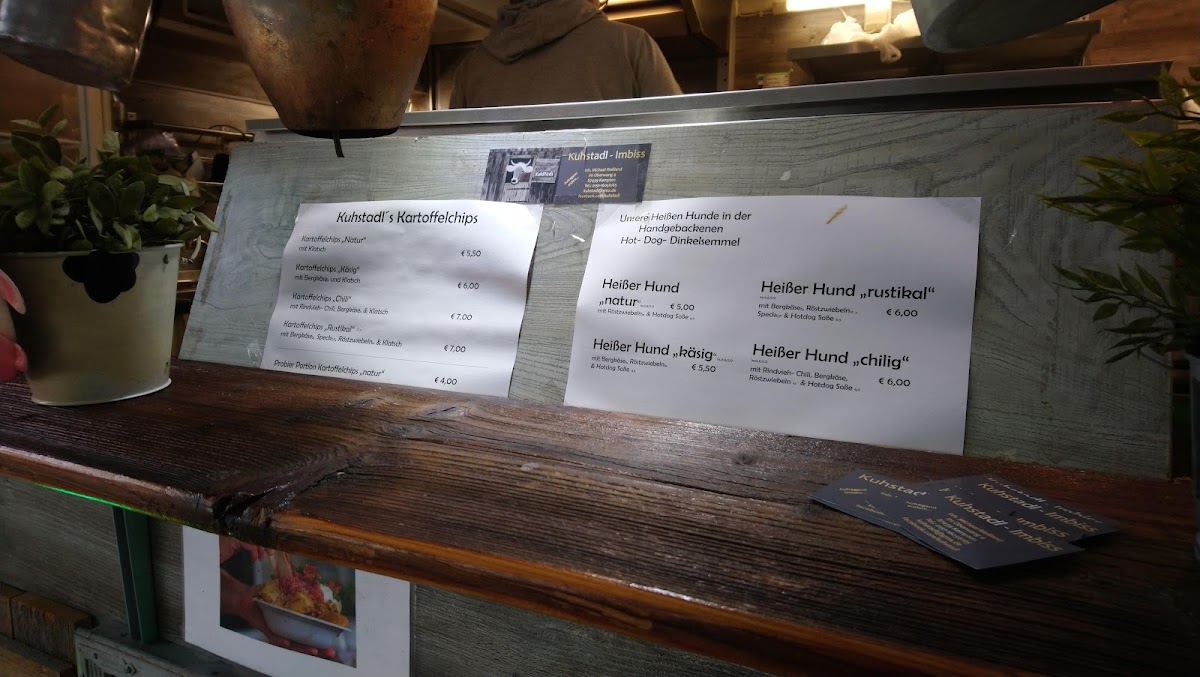 Kuhstadl - Imbiss
Kuhstadl
Kuhstadl´s Kartoffelchips
Kartoffelchips „Natur“
mit Klatsch
€ 5,50
Kartoffelchips „Käsig“
mit Bergkäse, und Klatsch
€ 6,00
Kartoffelchips „Chili“
mit Rindvieh- Chili, Bergkäse, & Klatsch
€ 7,00
Kartoffelchips „Rustikal“
mit Bergkäse, Speck, Röstzwiebeln, & Klatsch
€ 7,00
Probier Portion Kartoffelchips „natur“
€ 4,00
Unsere Heißen Hunde in der
Handgebackenen
Hot- Dog- Dinkelsemmel
Heißer Hund
„natur“ € 5,00
mit Röstzwiebeln & Hotdog Soße
Heißer Hund „käsig“
mit Bergkäse, Röstzwiebeln
& Hotdog Soße € 5,50
Heißer Hund „rustikal“
mit Bergkäse, Röstzwiebeln
Speck & Hotdog Soße € 6,00
Heißer Hund „chilig“
mit Rindvieh- Chili, Bergkäse,
Röstzwiebeln & Hotdog Soße € 6,00
Kuhstadl
Kuhstadl - Imbiss